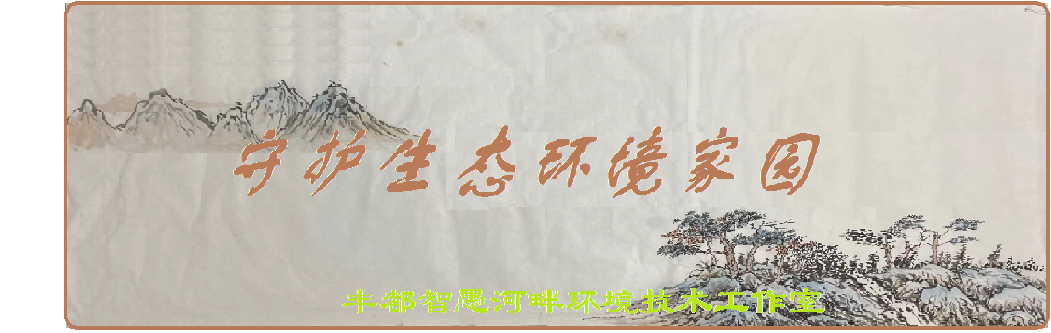 守护生态环境家园
牛都智思河畔环境技术工作室